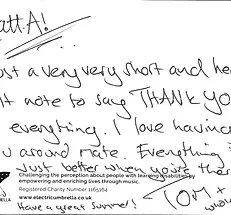 att A!
ust a very very short and hea
lt note to say THANK YO
everything. I love having
u around mate. Everything
just better when you're ther
Challenging the perception about people with learning disabilities by
empowering and enriching lives through music.
Registered Charity Number 1165164
www.electricumbrella.co.uk
Have a great Summer!
TOM +